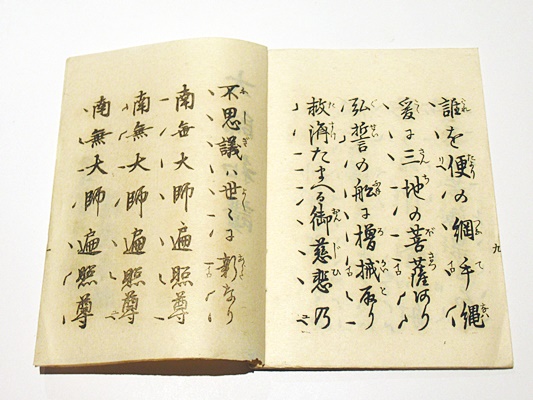 誰を便の綱手縄
爰に三地の菩薩あり
弘誓の船に櫓械取り
救済たまへる御慈悲乃
不思議ハ世々に新なり
南無大師遍照尊
南無大師遍照尊
南無大師遍照尊